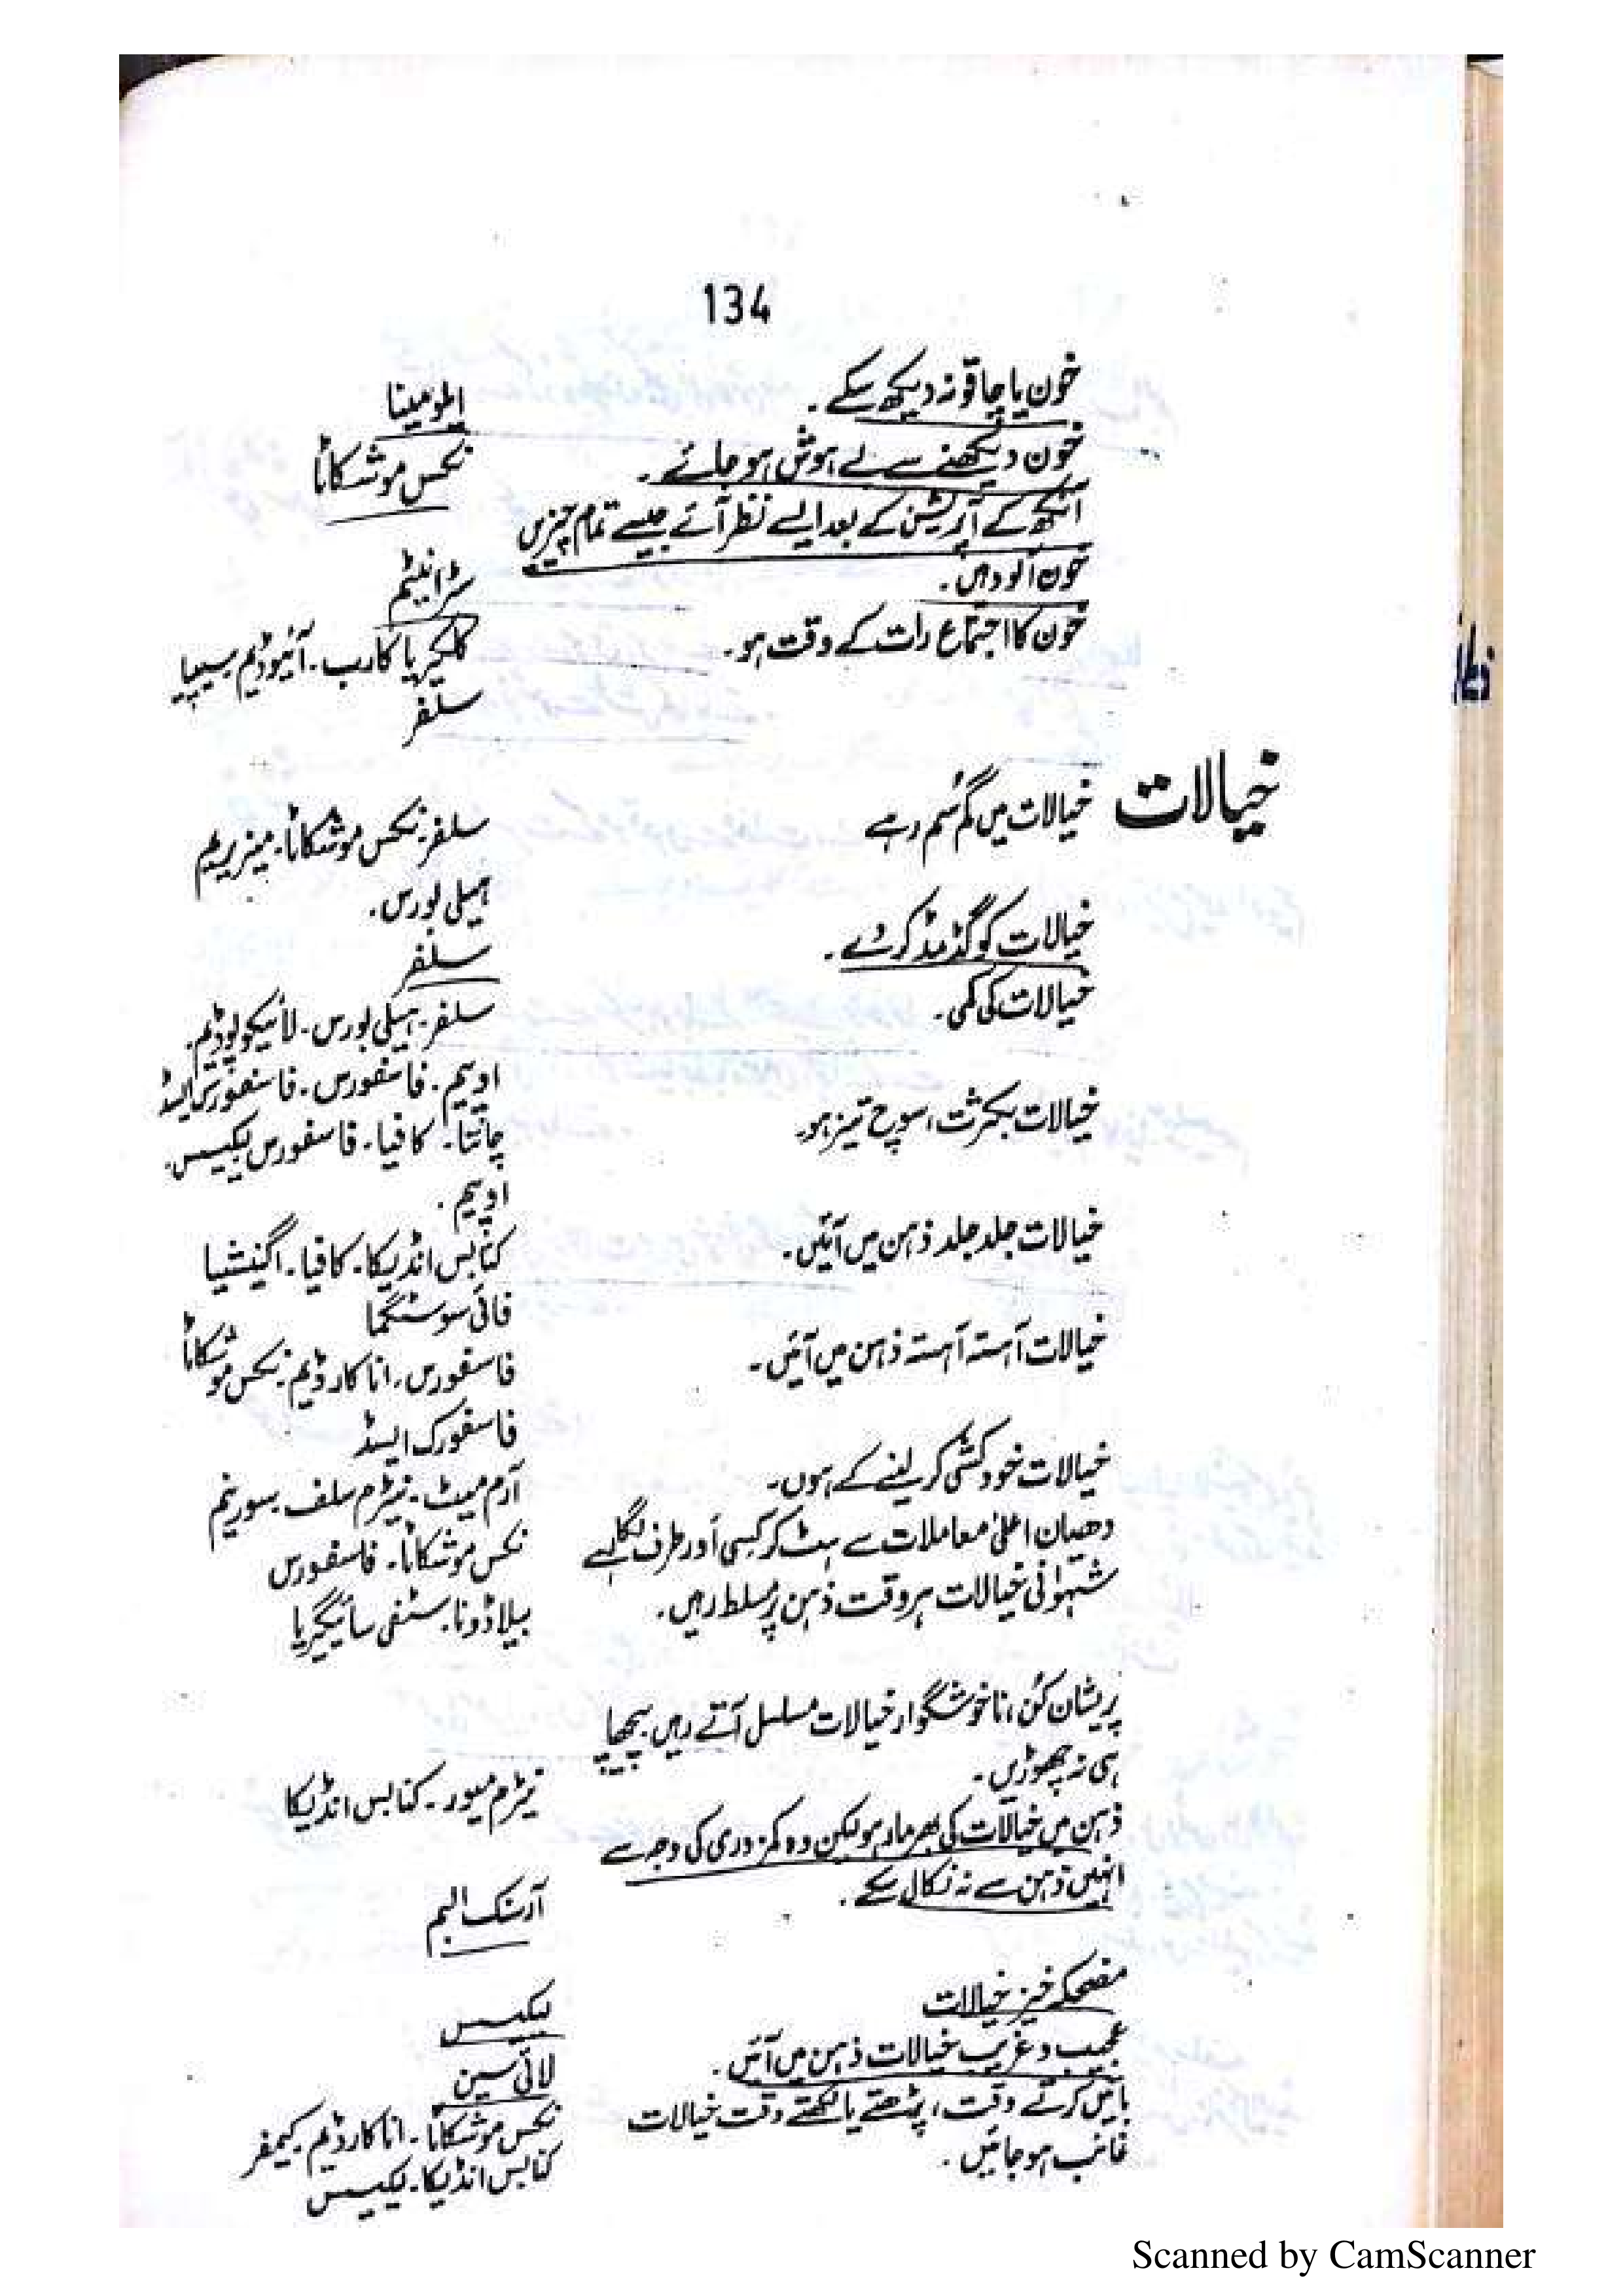 134
خون یا چاقو نہ دیکھ سکے۔
ایلومینا
خون دیکھنے سے بے ہوش ہو جائے۔
نکس موشکاٹا
آنکھ کے آپریشن کے بعد ایسے نظر آئے جیسے تمام چیزیں
خون آلود ہیں۔
سٹرانٹیم
خون کا اجتماع رات کے وقت ہو۔
کلکیریا کارب۔ آئیوڈیم۔ سیپیا
سلفر
خیالات
خیالات میں گم سُم رہے
سلفر۔ نکس موشکاٹا۔ میزریم
ہیلی بورس۔
خیالات کو گڈمڈ کر دے۔
سلفر
خیالات کی کمی۔
سلفر۔ ہیلی بورس۔ لائیکوپوڈیم۔
اوپیم۔ فاسفورس۔ فاسفورس ایسڈ
خیالات بکثرت، سوچ تیز ہو۔
چائنا۔ کافیا۔ فاسفورس۔ لیکیسس۔
اوپیم۔
خیالات جلد جلد ذہن میں آئیں۔
کنابس انڈیکا۔ کافیا۔ اگنیشیا
فائی سوسٹگما
خیالات آہستہ آہستہ ذہن میں آئیں۔
فاسفورس۔ اناکارڈیم۔ نکس موشکاٹا
فاسفورک ایسڈ
خیالات خودکشی کر لینے کے ہوں۔
آرم میٹ۔ نیٹرم سلف۔ سورینم
دھیان اعلیٰ معاملات سے ہٹ کر کسی اور طرف لگا رہے
نکس موشکاٹا۔ فاسفورس
شہوانی خیالات ہر وقت ذہن پر مسلط رہیں۔
بیلاڈونا۔ سٹفی سائیگیریا
پریشان کُن، ناخوشگوار خیالات مسلسل آتے رہیں۔ پیچھا
ہی نہ چھوڑیں۔
نیٹرم میور۔ کنابس انڈیکا
ذہن میں خیالات کی بھرمار ہو لیکن وہ کمزوری کی وجہ سے
انہیں ذہن سے نہ نکال سکے۔
آرسنک البم
مضحکہ خیز خیالات
لیکیسس
عجیب و غریب خیالات ذہن میں آئیں۔
لائی سین
باتیں کرتے وقت، پڑھتے یا لکھتے وقت خیالات
نکس موشکاٹا۔ اناکارڈیم۔ کیمفر
غائب ہو جائیں۔
کنابس انڈیکا۔ لیکیسس
Scanned by CamScanner